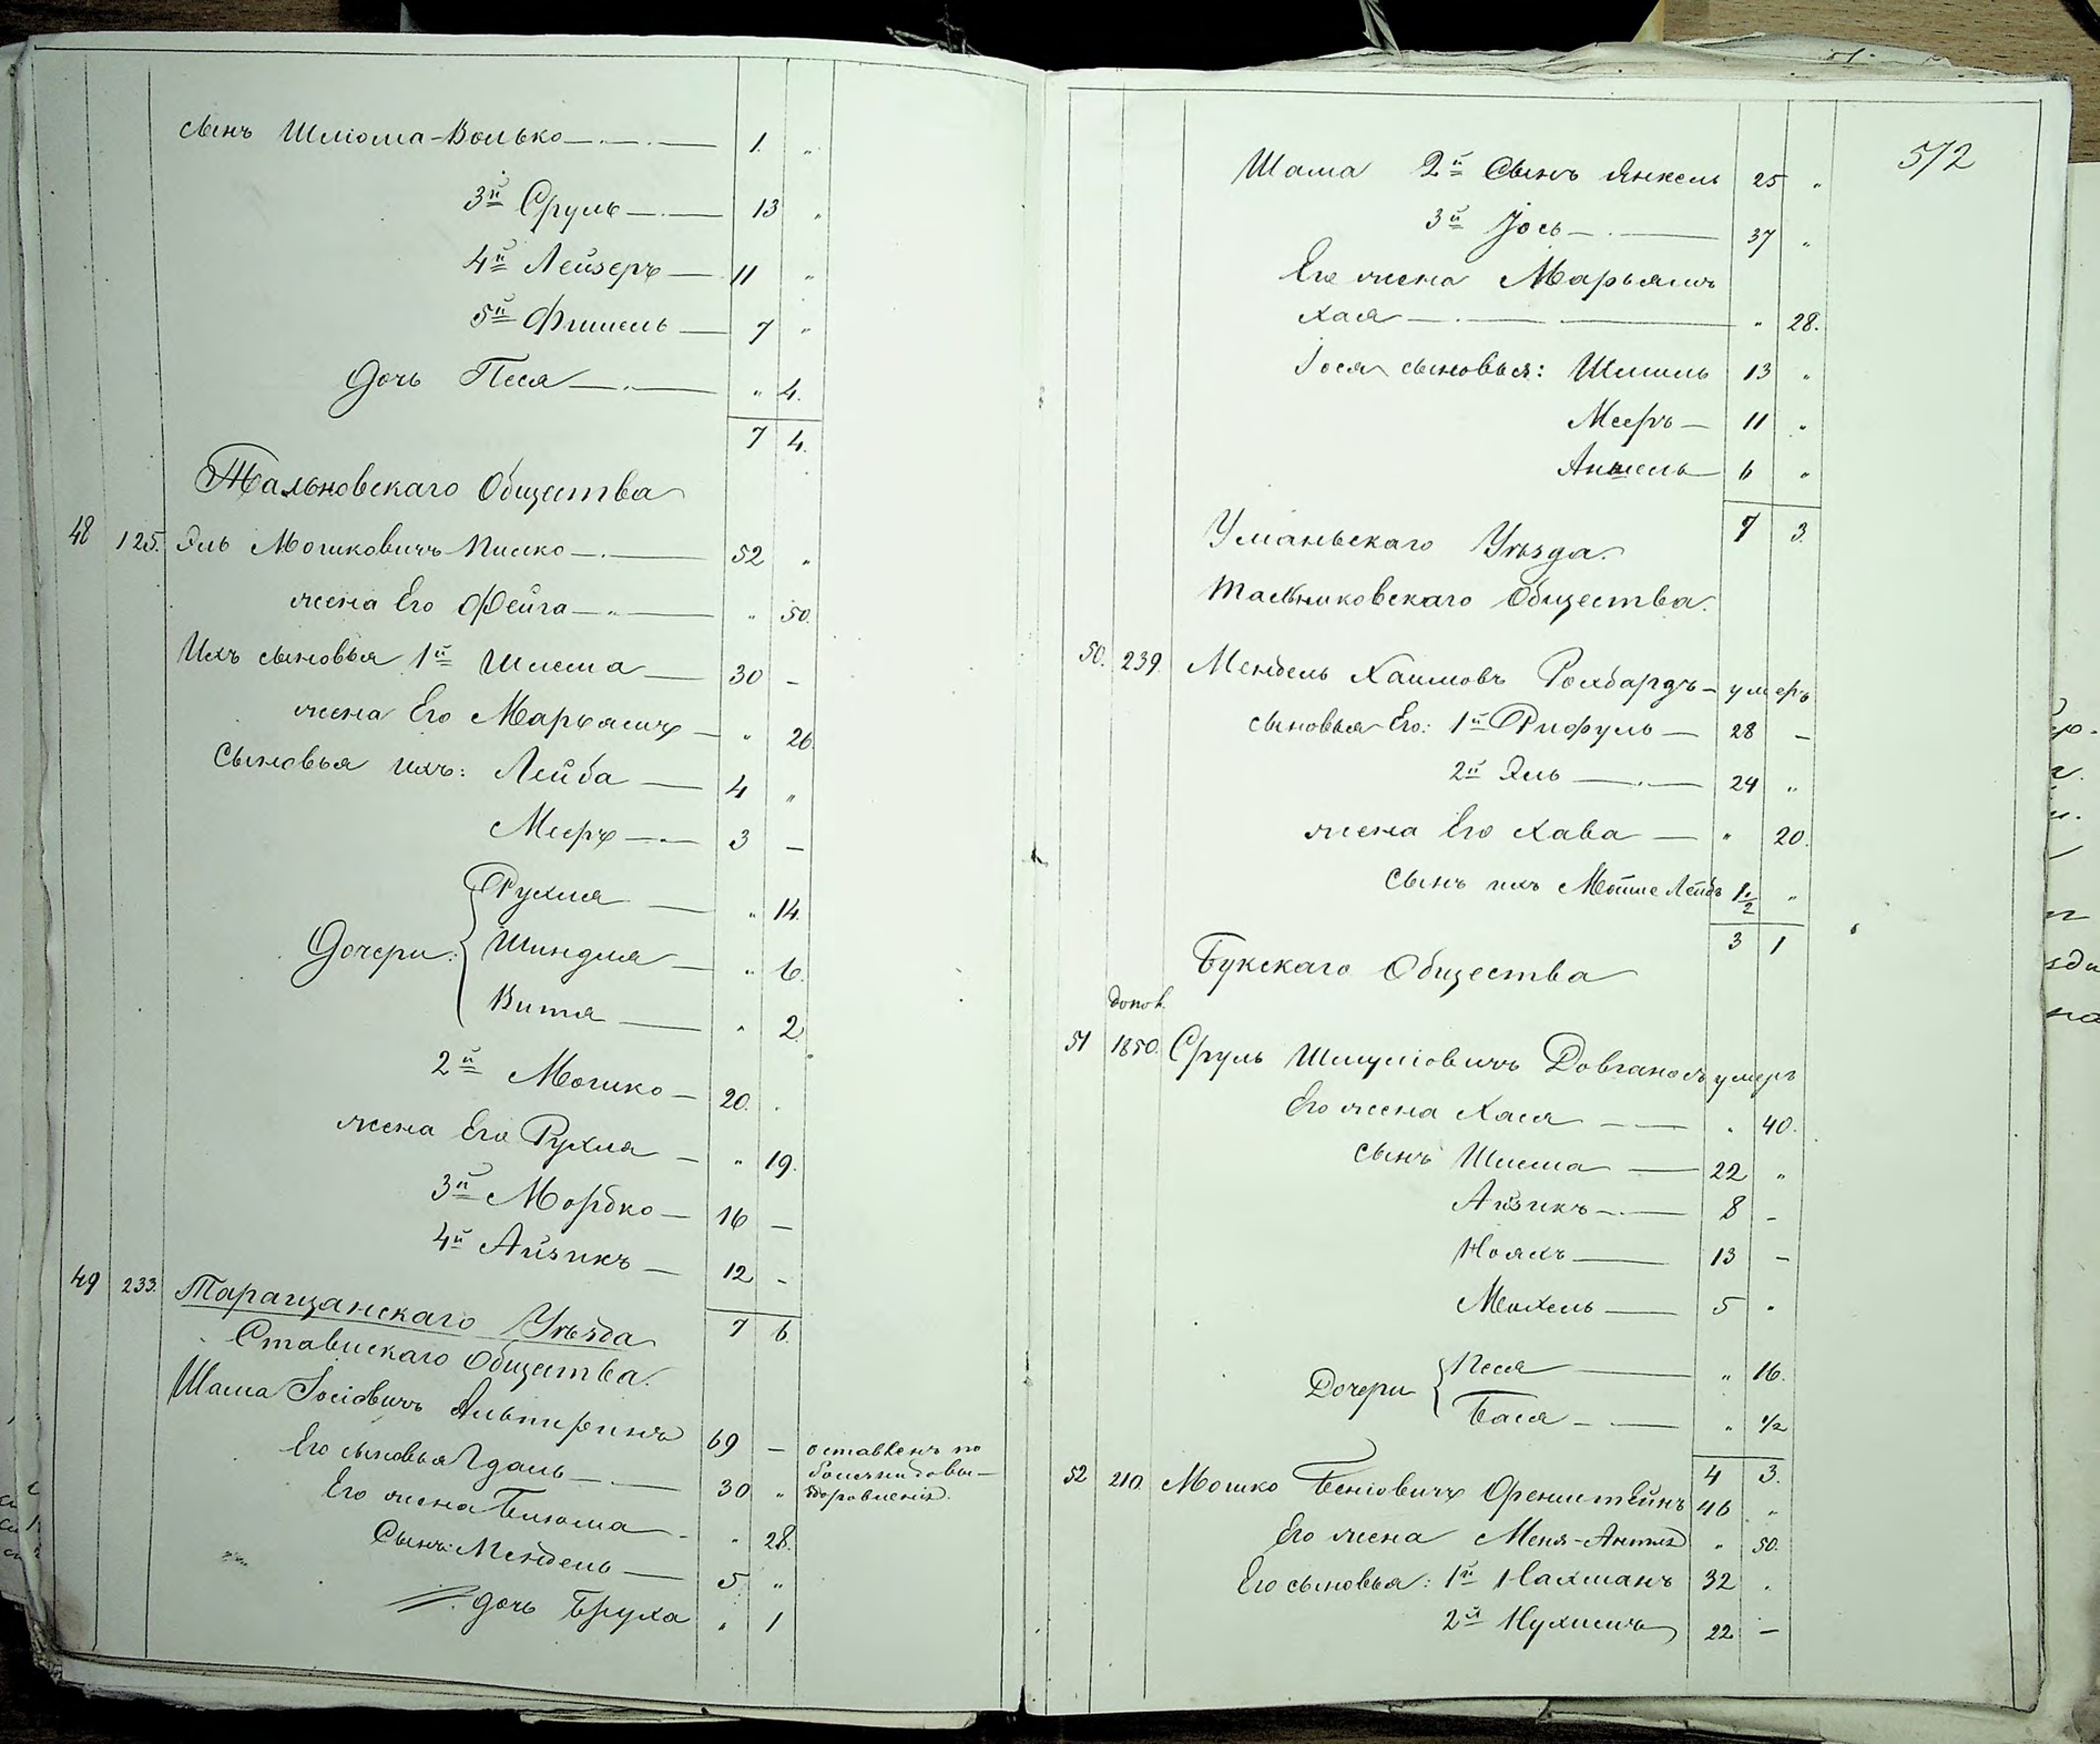 сынъ Шлiома-Волько 1. "
3й Сруль 13 "
4й Лейзеръ 11 "
5й Фишель 7 "
дочь Песя " 4.
7 4.
Тальновскаго Общества
48 125. Эль Мошковичъ Писко 52 "
жена Его Фейга " 50.
Ихъ сыновья 1й Шлема 30 -
жена Его Марьямъ " 26.
Сыновья ихъ: Лейба 4 "
Мееръ 3 -
Рухля " 14.
Дочери: Шиндля " 6.
Витя " 2.
2й Мошко 20. "
жена Его Рухля " 19.
3й Мордко 16 -
4й Айзикъ 12 -
7 6.
49 233. Таращанскаго Уѣзда
Ставискаго Общества.
Шама Iосiовичъ Альтеринъ 69 - оставленъ по
Его сыновья Гдаль 30 "
Его жена Блюма " 28.
Сынъ Мендель 5 "
дочь Бруха " 1
572
Шама 2й Сынъ Янкель 25 "
3й Iось 37 "
Его жена Марьямъ
Хая " 28.
Iося сыновья: Шмиль 13 "
Мееръ 11 "
Аншель 6 "
7 3.
Уманьскаго Уѣзда.
Общества.
50. 239. Мендель Хаимовъ умеръ
сыновья Его: 1й Рифуль 28 -
2й Эль 24 "
жена Его Хава " 20.
Сынъ ихъ Мошне Лейбъ 1 1/2 "
3 1
Букскаго Общества
допол.
51 1850. Сруль Шмулiовичъ умеръ
Его жена Хася " 40.
сынъ Шлема 22 "
Айзикъ 8 -
Нояхъ 13 -
Михель 5 "
Дочери Песя " 16.
Бася " 1/2
4 3.
52 210. Мошко Бенiовичъ Оренштейнъ 46 "
Его жена Меня- " 50.
Его сыновья: 1й Нахманъ 32 "
2й Нухимъ 22 -